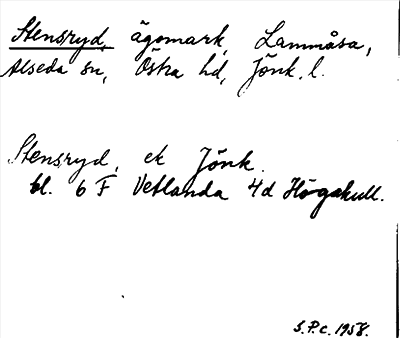 Stensryd, ägomark, Lammåsa,
Alseda sn, Östra hd, Jönk. l.
Stensryd, ek Jönk.
bl. 6 F Vetlanda 4d Högakull.
S.P.c. 1958.